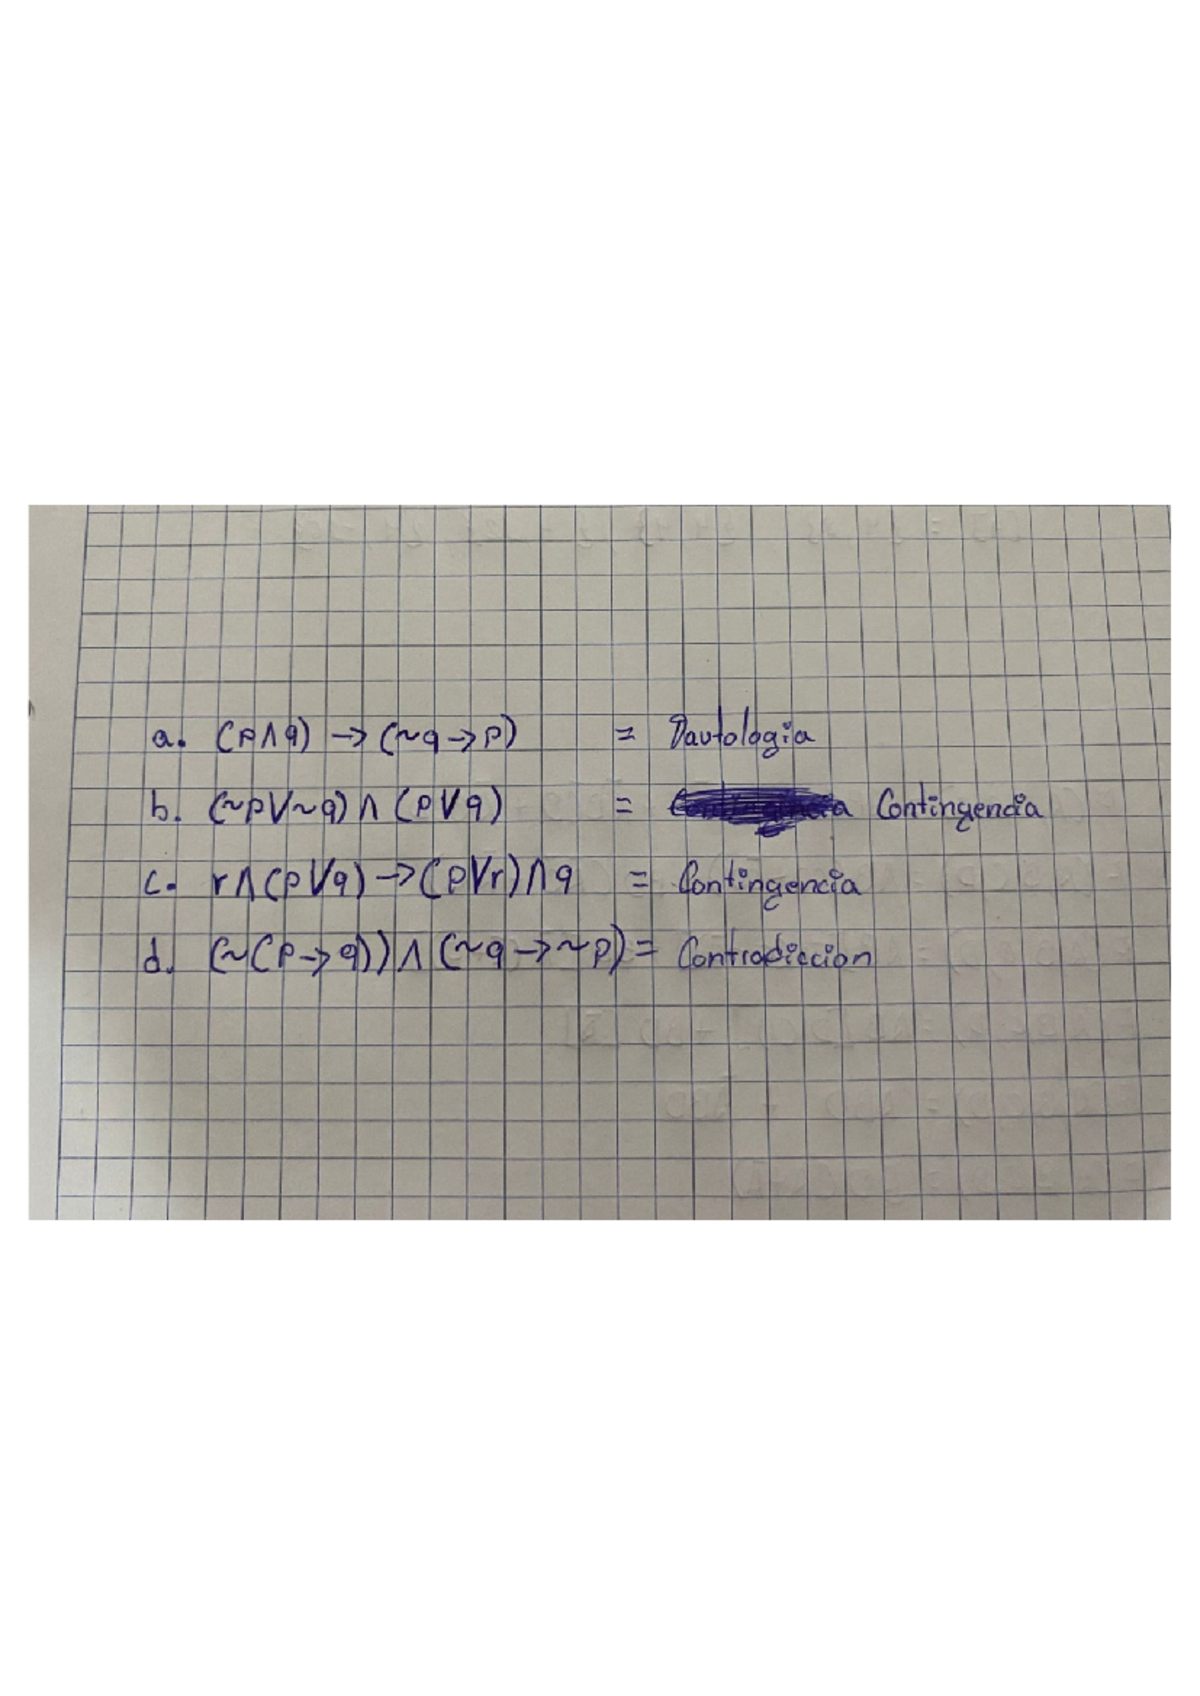 a. (p∧q) → (~q→p) = Tautologia
b. (~p∨~q)∧(p∨q) = Contingencia
c. r∧(p∨q)→(p∨r)∧q = Contingencia
d. (~(p→q))∧(~q→~p) = Contradiccion